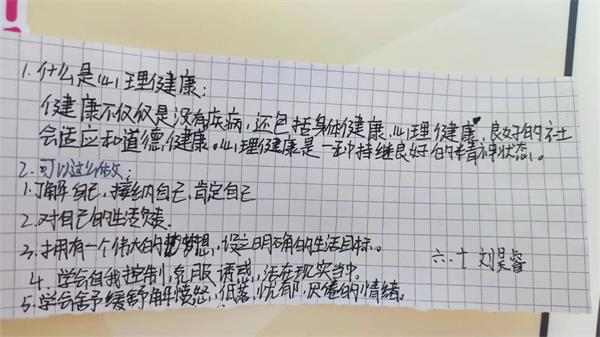 1.什么是心理健康:
健康不仅仅是没有疾病,还包括身体健康、心理健康、良好的社
会适应和道德健康。心理健康是一种持继良好的精神状态。
2.可以这么做:
1.了解自己,接纳自己,肯定自己
2.对自己的生活负责.
3.拥有一个伟大的梦想,设立明确的生活目标。
4.学会自我控制,克服诱惑,活在现实当中。
六.十 刘昊睿
5.学会舒缓舒解愤怒,低落,忧郁,厌倦的情绪。